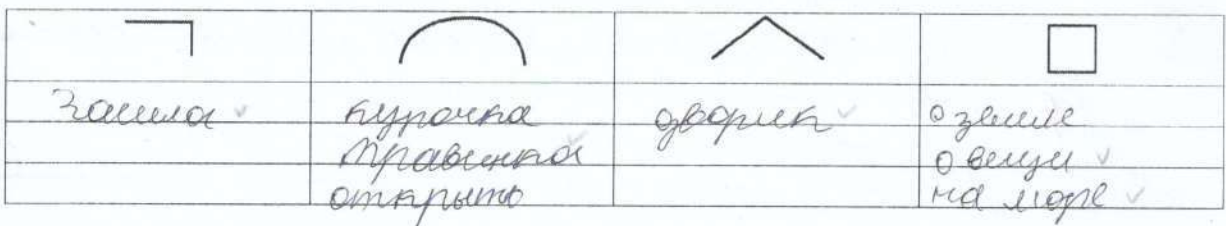 Зашла курочка дворик о земле
травинка о вещи
открыть на море